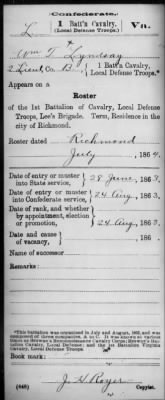 Confederate.
L 1 Batt'n Cavalry, Va.
(Local Defense Troops.)
Wm T Lyndsay
2 Lieut Co. B., 1 Batt'n Cavalry,
Local Defense Troops.*
Appears on a
Roster
of the 1st Battalion of Cavalry, Local Defense
Troops, Lee's Brigade. Term, Residence in the
city of Richmond.
Roster dated Richmond
July, 1864.
Date of entry or muster
into State service, 28 June, 1863.
Date of entry or muster
into Confederate service, 24 Aug, 1863.
Date of rank, and whether
by appointment, election
or promotion, 24 Aug, 1863.
Date and cause
of vacancy , 186 .
Name of successor
Remarks:
*This battalion was organized in July and August, 1863, and was
composed of three companies, A to C. It was known at various
times as Browne's Reconnaissance Cavalry Corps; Browne's Battalion
Cavalry, Local Defense; and the 1st Battalion Virginia
Cavalry, Local Defense Troops.
Book mark:
J. H. Royer
(648) Copyist.